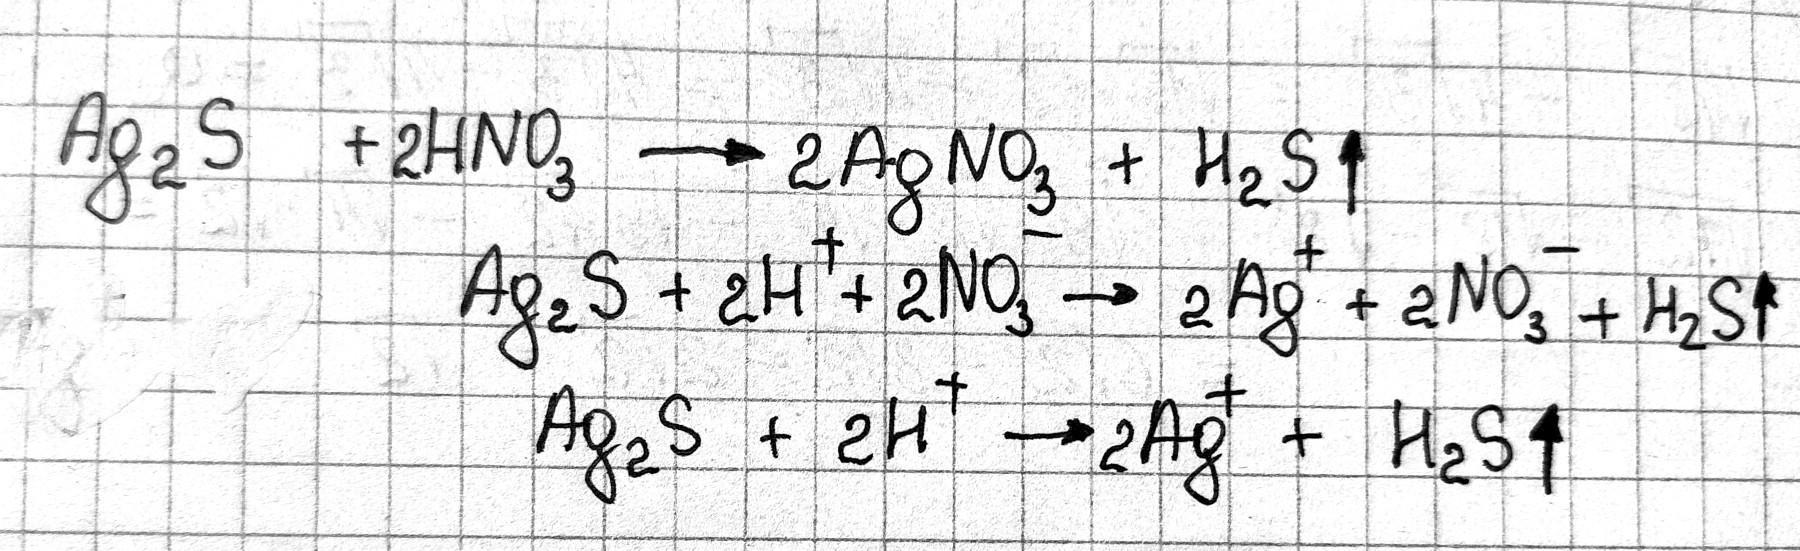 Ag₂S + 2HNO₃ → 2AgNO₃ + H₂S↑
Ag₂S + 2H⁺ + 2NO₃⁻ → 2Ag⁺ + 2NO₃⁻ + H₂S↑
Ag₂S + 2H⁺ → 2Ag⁺ + H₂S↑